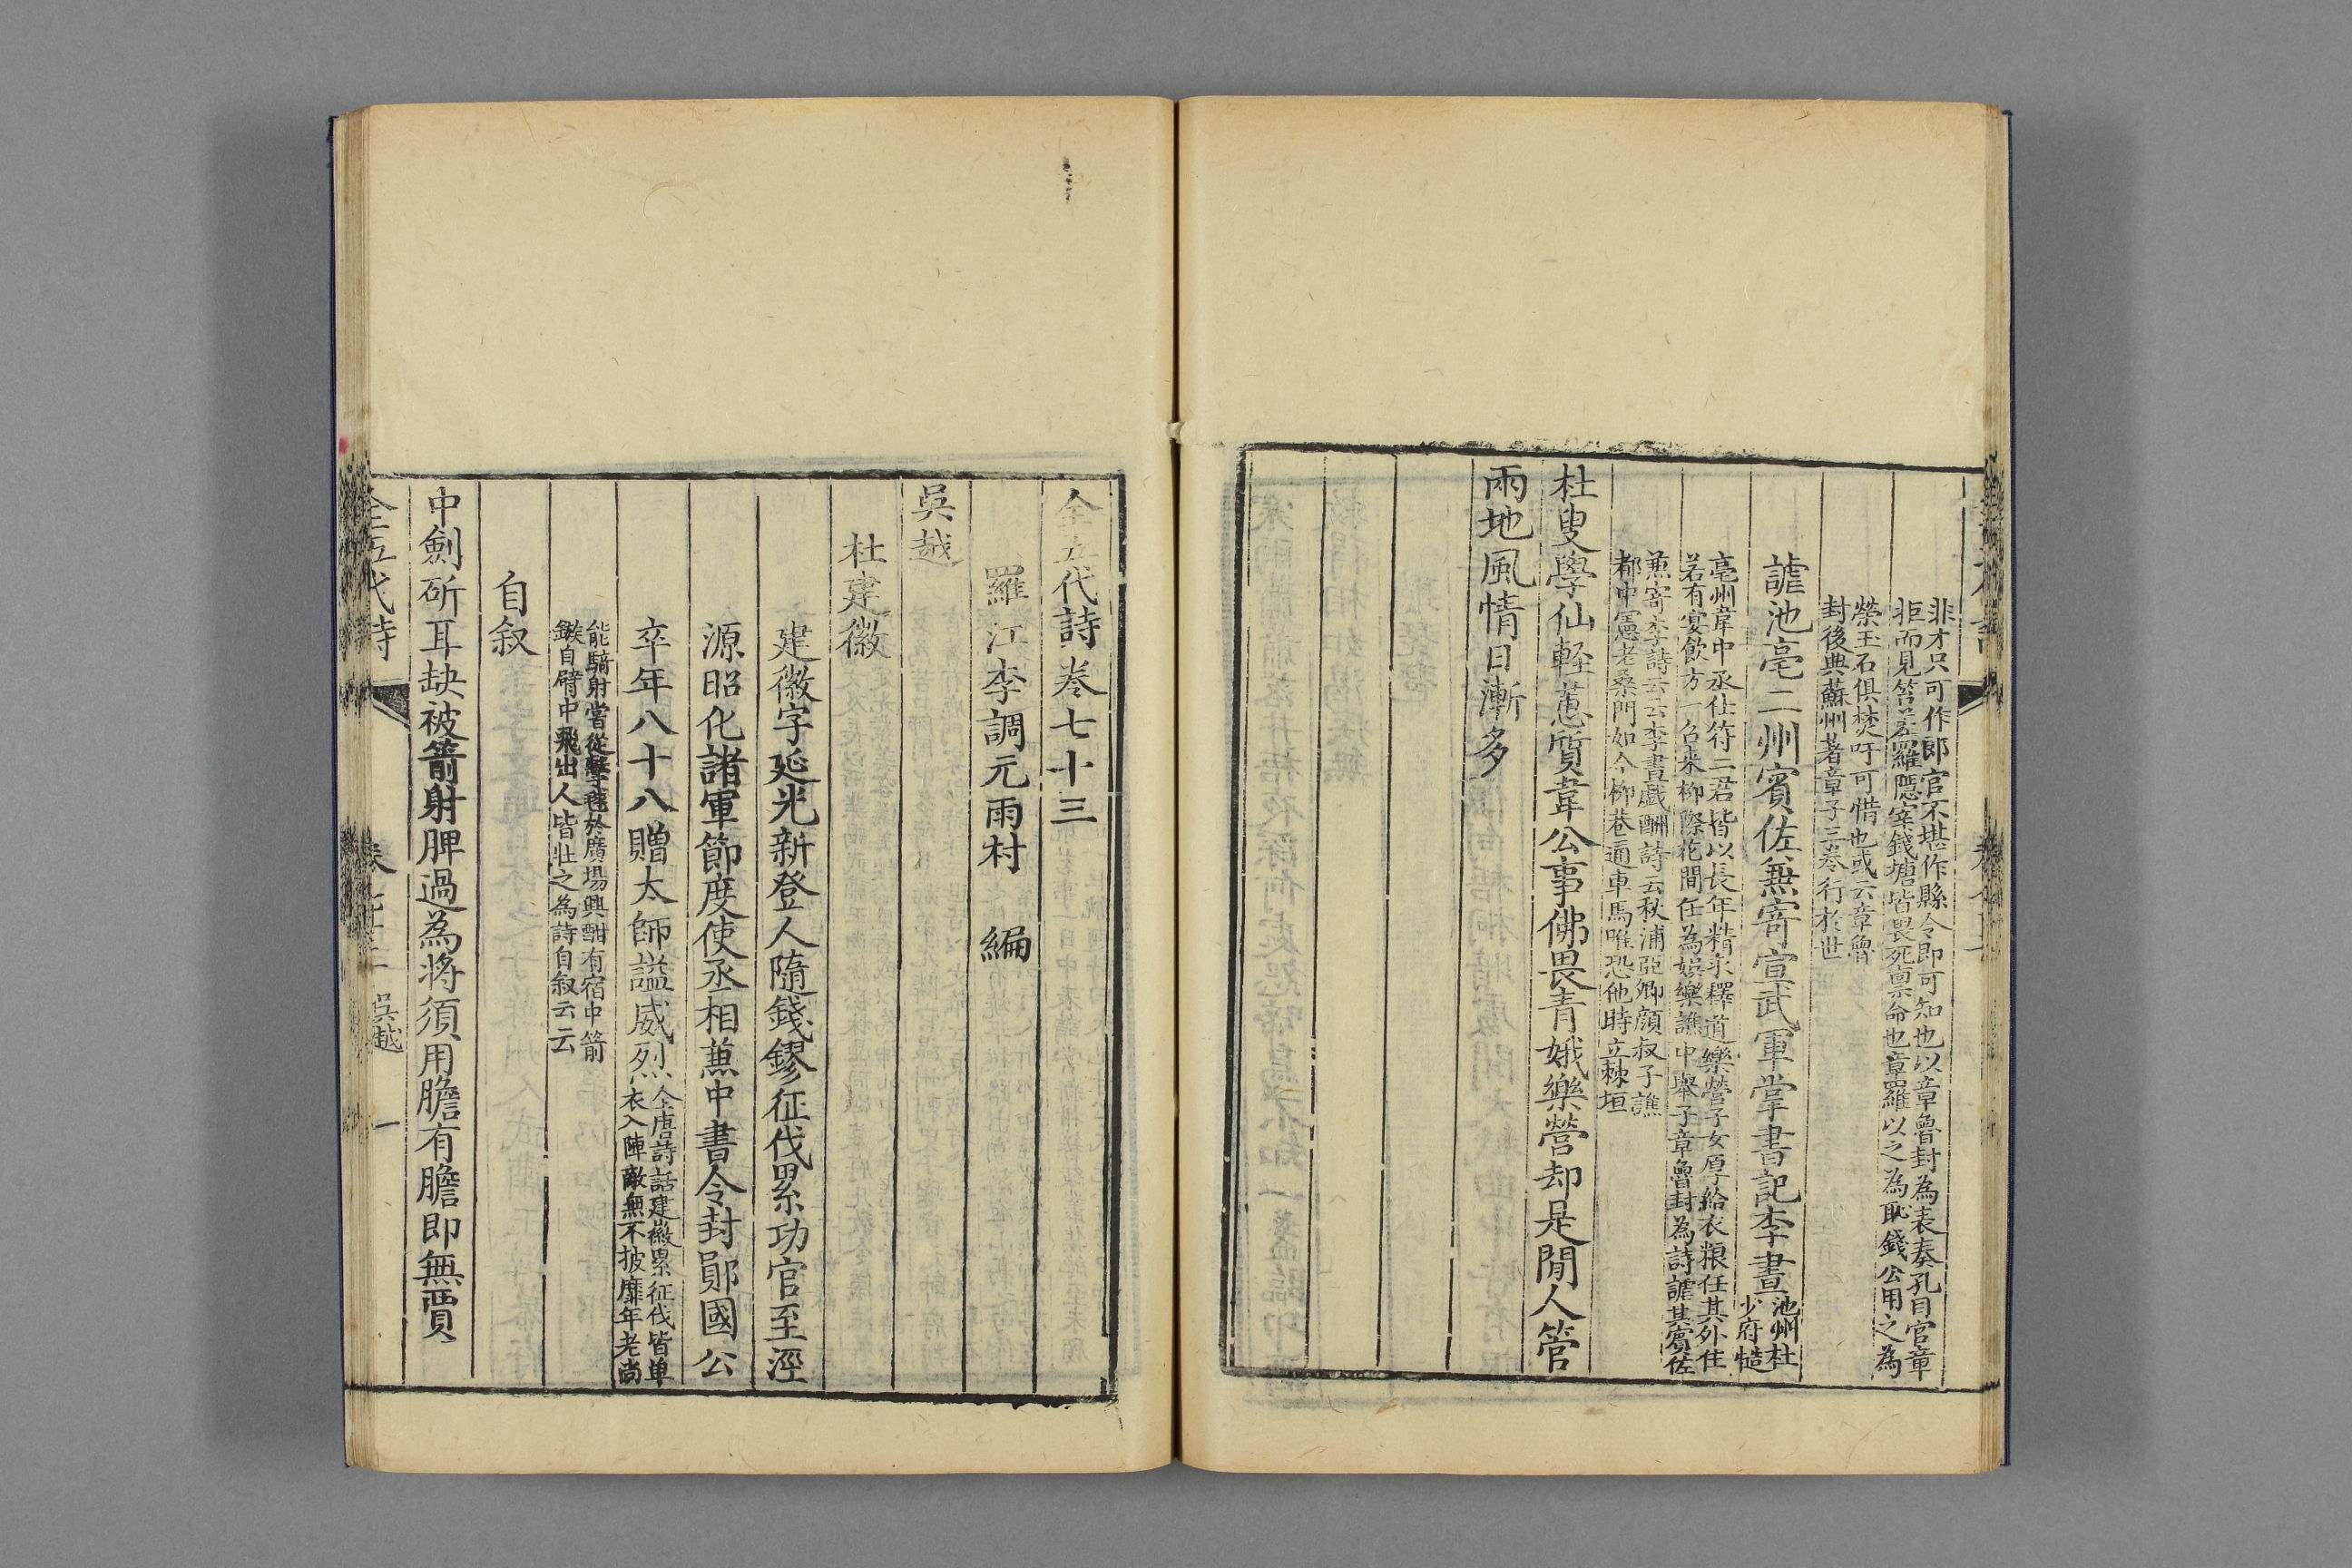 非才只可作郎官不堪作縣令即可知也以章魯封為表奏孔目官章
拒而見笞差羅隱宰錢塘皆畏死稟命也章羅以之為恥錢公用之為
榮玉石俱焚吁可惜也或云章魯
封後典蘇州著章子三卷行於世
謔池亳二州賓佐兼寄宣武軍掌書記李晝
池州杜
少府慥
亳州韋中丞仕符二君皆以長年精求釋道樂營子女厚給衣粮任其外住
若有宴飲方一召来柳際花間任為娯樂譙中舉子章魯封為詩謔其賓佐
兼寄李詩云云李晝戯酬詩云秋浦亞卿顔叔子譙
都中憲老桑門如今柳巷通車馬唯恐他時立棘垣
杜叟學仙輕蕙質韋公事佛畏青娥樂營却是閒人管
兩地風情日漸多
全五代詩卷七十三
羅江李調元雨村 編
吳越
杜建徽
建徽字延光新登人隨錢鏐征伐累功官至涇
源昭化諸軍節度使丞相兼中書令封鄖國公
卒年八十八贈太師謚威烈
全唐詩話建徽累征伐皆单
衣入陣敵無不披靡年老尚
能騎射嘗從擊毬於廣場興酣有宿中箭
鏃自臂中飛出人皆壯之為詩自叙云云
自叙
中劍斫耳缺被箭射脾過為将須用膽有膽即無賈
全五代詩
卷七十三 吳越
一